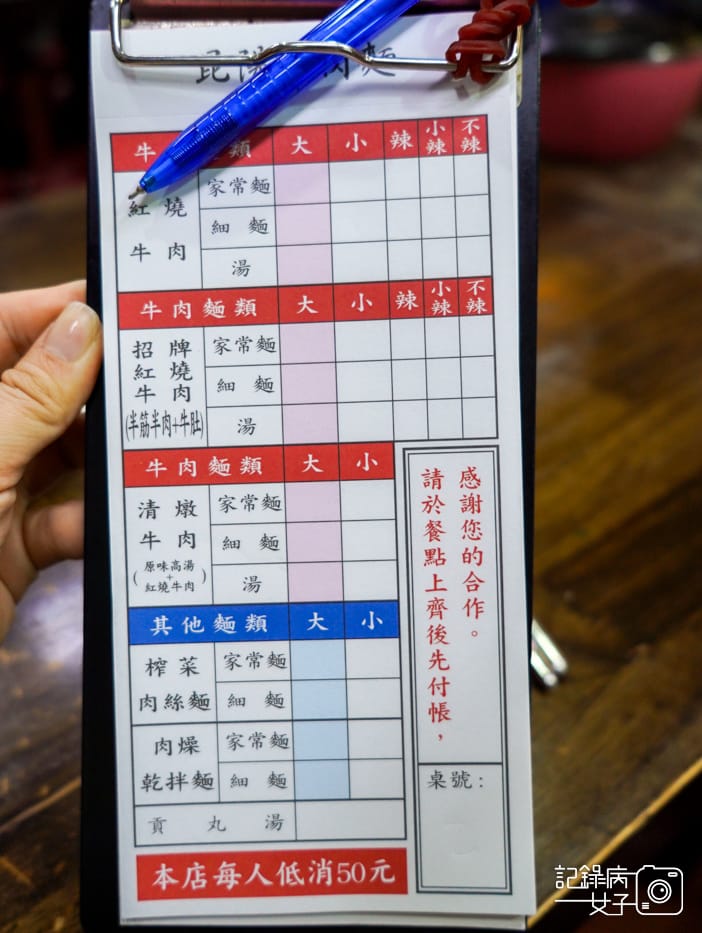 牛 類 大 小 辣 小辣 不辣
紅燒
牛肉
家常麵
細麵
湯
牛肉麵類 大 小 辣 小辣 不辣
招牌
紅燒
牛肉
(半筋半肉+牛肚)
家常麵
細麵
湯
牛肉麵類 大 小
清燉
牛肉
(原味高湯
+
紅燒牛肉)
家常麵
細麵
湯
其他麵類 大 小
榨菜
肉絲麵
家常麵
細麵
肉燥
乾拌麵
家常麵
細麵
貢丸湯
感謝您的合作。
請於餐點上齊後先付帳，
桌號：
本店每人低消50元
記錄病
女子